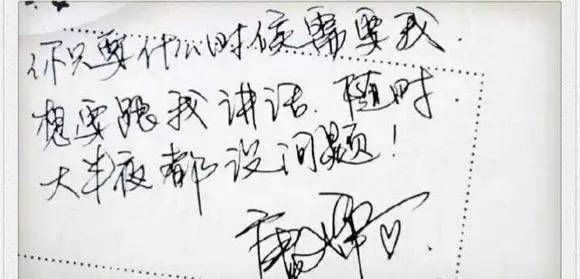 你只要什么时侯需要我.
想要跟我讲话.随时.
大半夜都没问题!